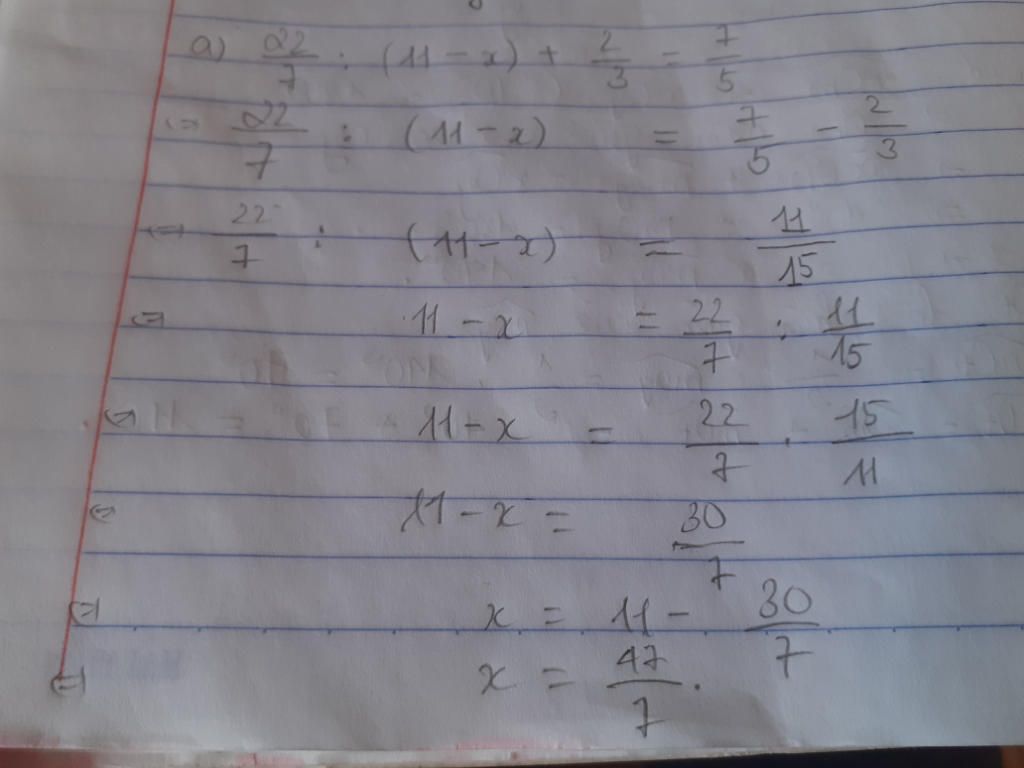 a) 22/7 : (11 - x) + 2/3 = 7/5
⇔ 22/7 : (11 - x) = 7/5 - 2/3
⇔ 22/7 : (11 - x) = 11/15
⇔ 11 - x = 22/7 : 11/15
⇔ 11 - x = 22/7 . 15/11
⇔ 11 - x = 30/7
⇔ x = 11 - 30/7
⇔ x = 47/7.